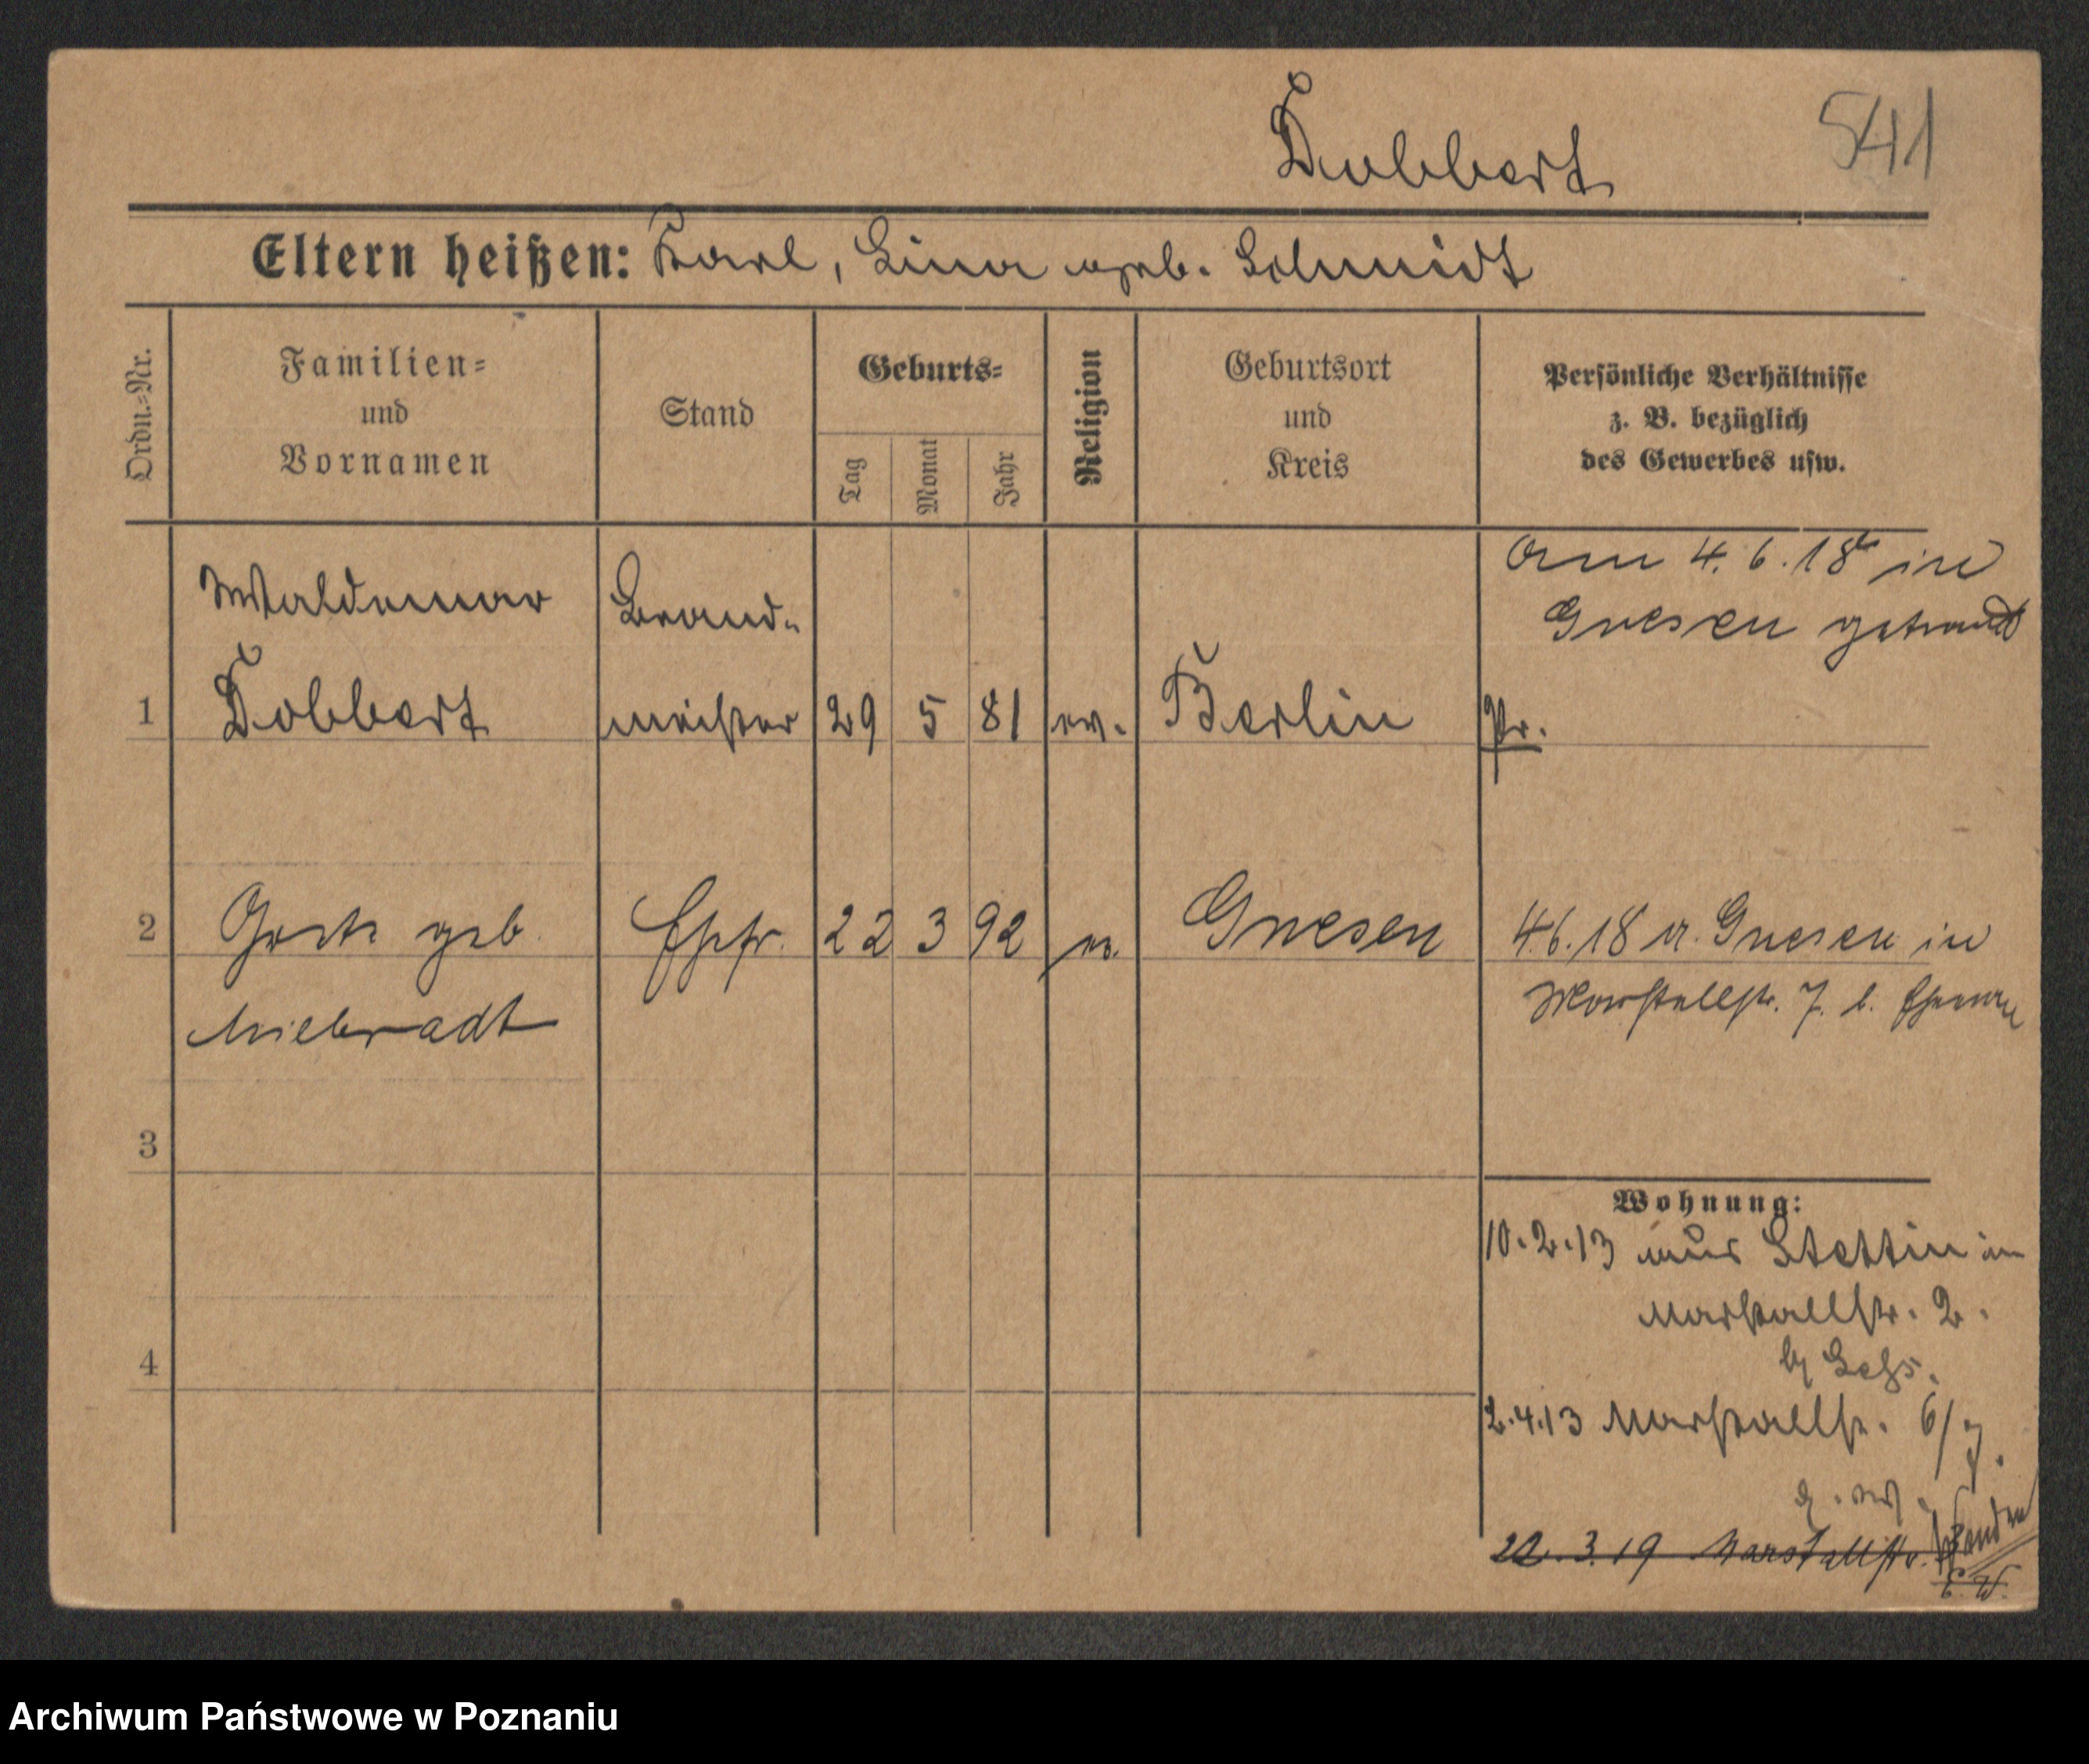 541
Dobbert
Eltern heißen: Karl, Lina geb. Schmidt
Ordn.=Nr.
Familien=
und
Vornamen
Stand
Geburts=
Tag
Monat
Jahr
Religion
Geburtsort
und
Kreis
Persönliche Verhältnisse
z. B. bezüglich
des Gewerbes usw.
am 4. 6. 18 in
Gnesen getraut
Waldemar
Brand-
1 Dobbert meister 29 5 81 ev. Berlin Pr.
2 geb. Ehefr. 22 3 92 ev. Gnesen 4.6.18 v. Gnesen in
Marstallstr. 7. b. Ehemann
3
4
Wohnung:
10.2.13 aus Stettin in
Marstallstr. 2.
2.4.13 Marstallstr. 6/7.
22.3.19 Marstallstr.
E.W.
Archiwum Państwowe w Poznaniu